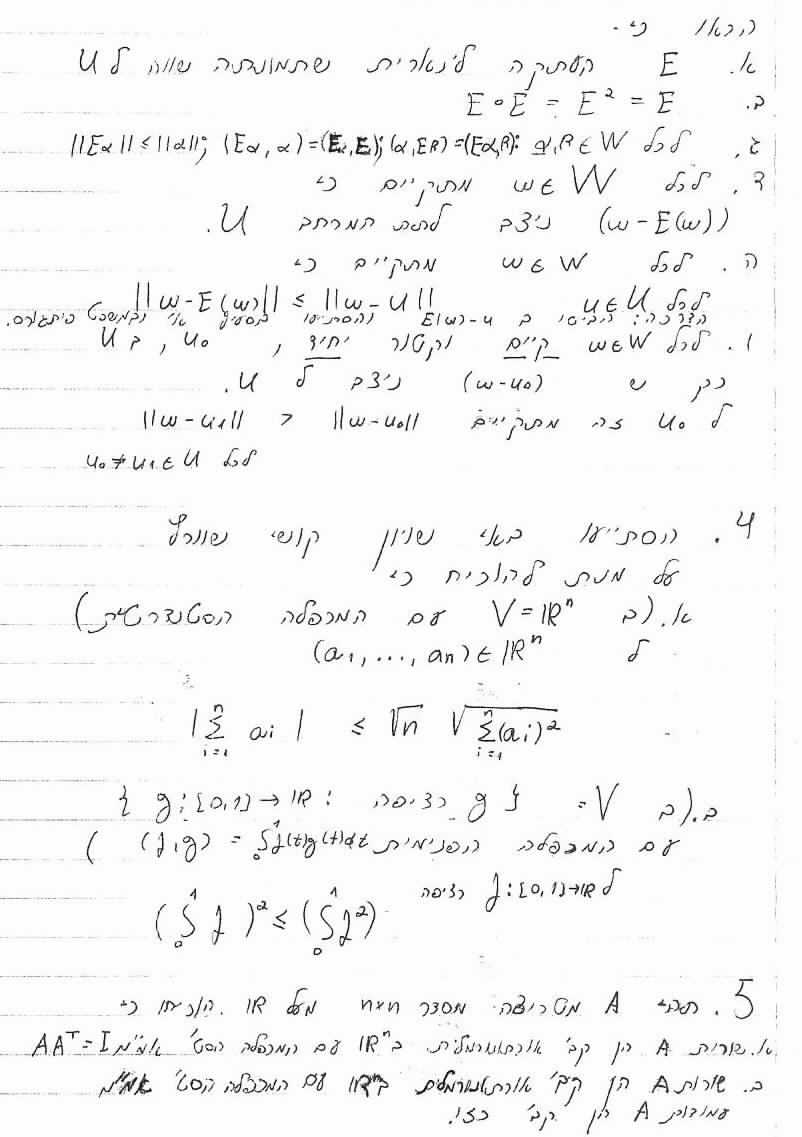 הראו כי -
א. E העתקה לינארית שתמונתה שווה ל U
ב. E∘E = E² = E
ג. לכל α,β∈W :(α,Eβ)=(Eα,β) ;(Eα,α)=(Eα,Eα) ;||Eα||≤||α||
ד. לכל w∈W מתקיים כי
(w-E(w)) ניצב לתת המרחב U.
ה. לכל w∈W מתקיים כי
לכל u∈U ||w-E(w)|| ≤ ||w-u||
הדרכה: הביטו ב E(w)-u והסתייעו בסעיף א' ובמשפט פיתגורס.
ו. לכל w∈W קיים וקטור יחיד, u₀, ב U
כך ש (w-u₀) ניצב ל U.
ל u₀ זה מתקיים ||w-u₁|| > ||w-u₀||
לכל u₀≠u₁∈U
4. הסתייעו באי שוויון קושי שוורץ
על מנת להוכיח כי
א. (ב V=ℝⁿ עם המכפלה הסטנדרטית)
ל (a₁,...,aₙ)∈ℝⁿ
|∑ᵢ₌₁ⁿ aᵢ| ≤ √n √∑ᵢ₌₁ⁿ(aᵢ)²
ב. (ב V = { g רציפה : g:[0,1]→ℝ }
עם המכפלה הפנימית (f,g) = ₀∫¹f(t)g(t)dt )
ל f:[0,1]→ℝ רציפה
(₀∫¹ f)² ≤ (₀∫¹ f²)
5. תהי A מטריצה מסדר n×n מעל ℝ. הוכיחו כי
א. שורות A הן קב' אורתונורמלית ב ℝⁿ עם המכפלה הסט' אמ"מ AAᵀ=I
ב. שורות A הן קב' אורתונורמלית ב ℝⁿ עם המכפלה הסט' אמ"מ
עמודות A הן קב' כזו.